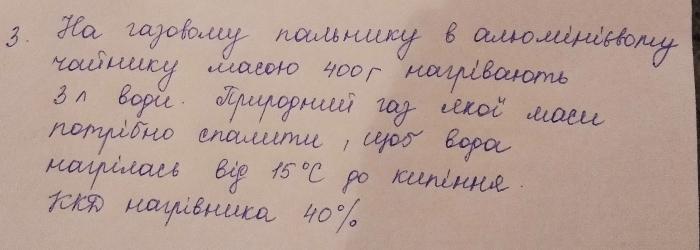 3. На газовому пальнику в алюмінієвому
чайнику масою 400г нагрівають
3 л води. Природний газ якої маси
потрібно спалити, щоб вода
нагрілась від 15°С до кипіння.
ККД нагрівника 40%